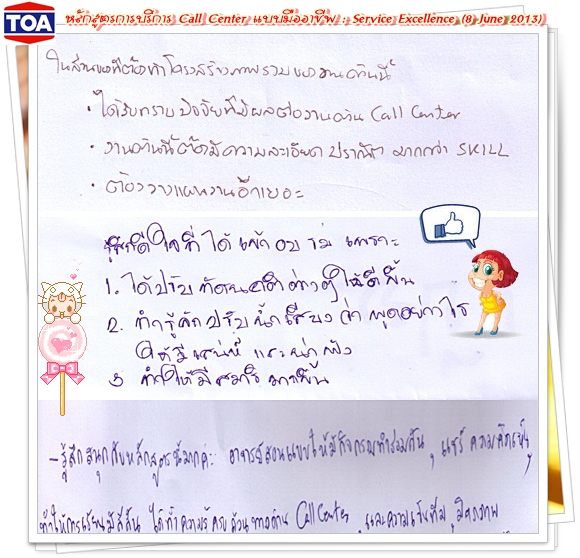 TOA
หลักสูตรการบริการ Call Center แบบมืออาชีพ : Service Excellence (8 June 2013)
ในส่วนของที่ต้องทำโครงสร้างภาพรวมของงานด้านนี้
• ได้รับทราบปัจจัยที่มีผลต่องานด้าน Call Center
• งานด้านนี้ต้องมีความละเอียด ปราณีต มากกว่า SKILL
• ต้องวางแผนงานอีกเยอะ
รู้สึกดีใจที่ได้เข้าอบรม เพราะ
1. ได้ปรับทัศนคติต่างๆให้ดีขึ้น
2. ทำรู้จักปรับน้ำเสียงว่าพูดอย่างไร
ให้มีเสน่ห์ และน่าฟัง
3 ทำให้มีสมาธิมากขึ้น
- รู้สึกสนุกกับหลักสูตรนี้มากค่ะ อาจารย์สอนแบบให้มีกิจกรรมทำร่วมกัน , แชร์ความคิดเห็น
ทำให้การเรียนมีสีสัน ได้ทั้งความรู้ ทางด้าน Call Center , และความเป็นทีม , มิตรภาพ